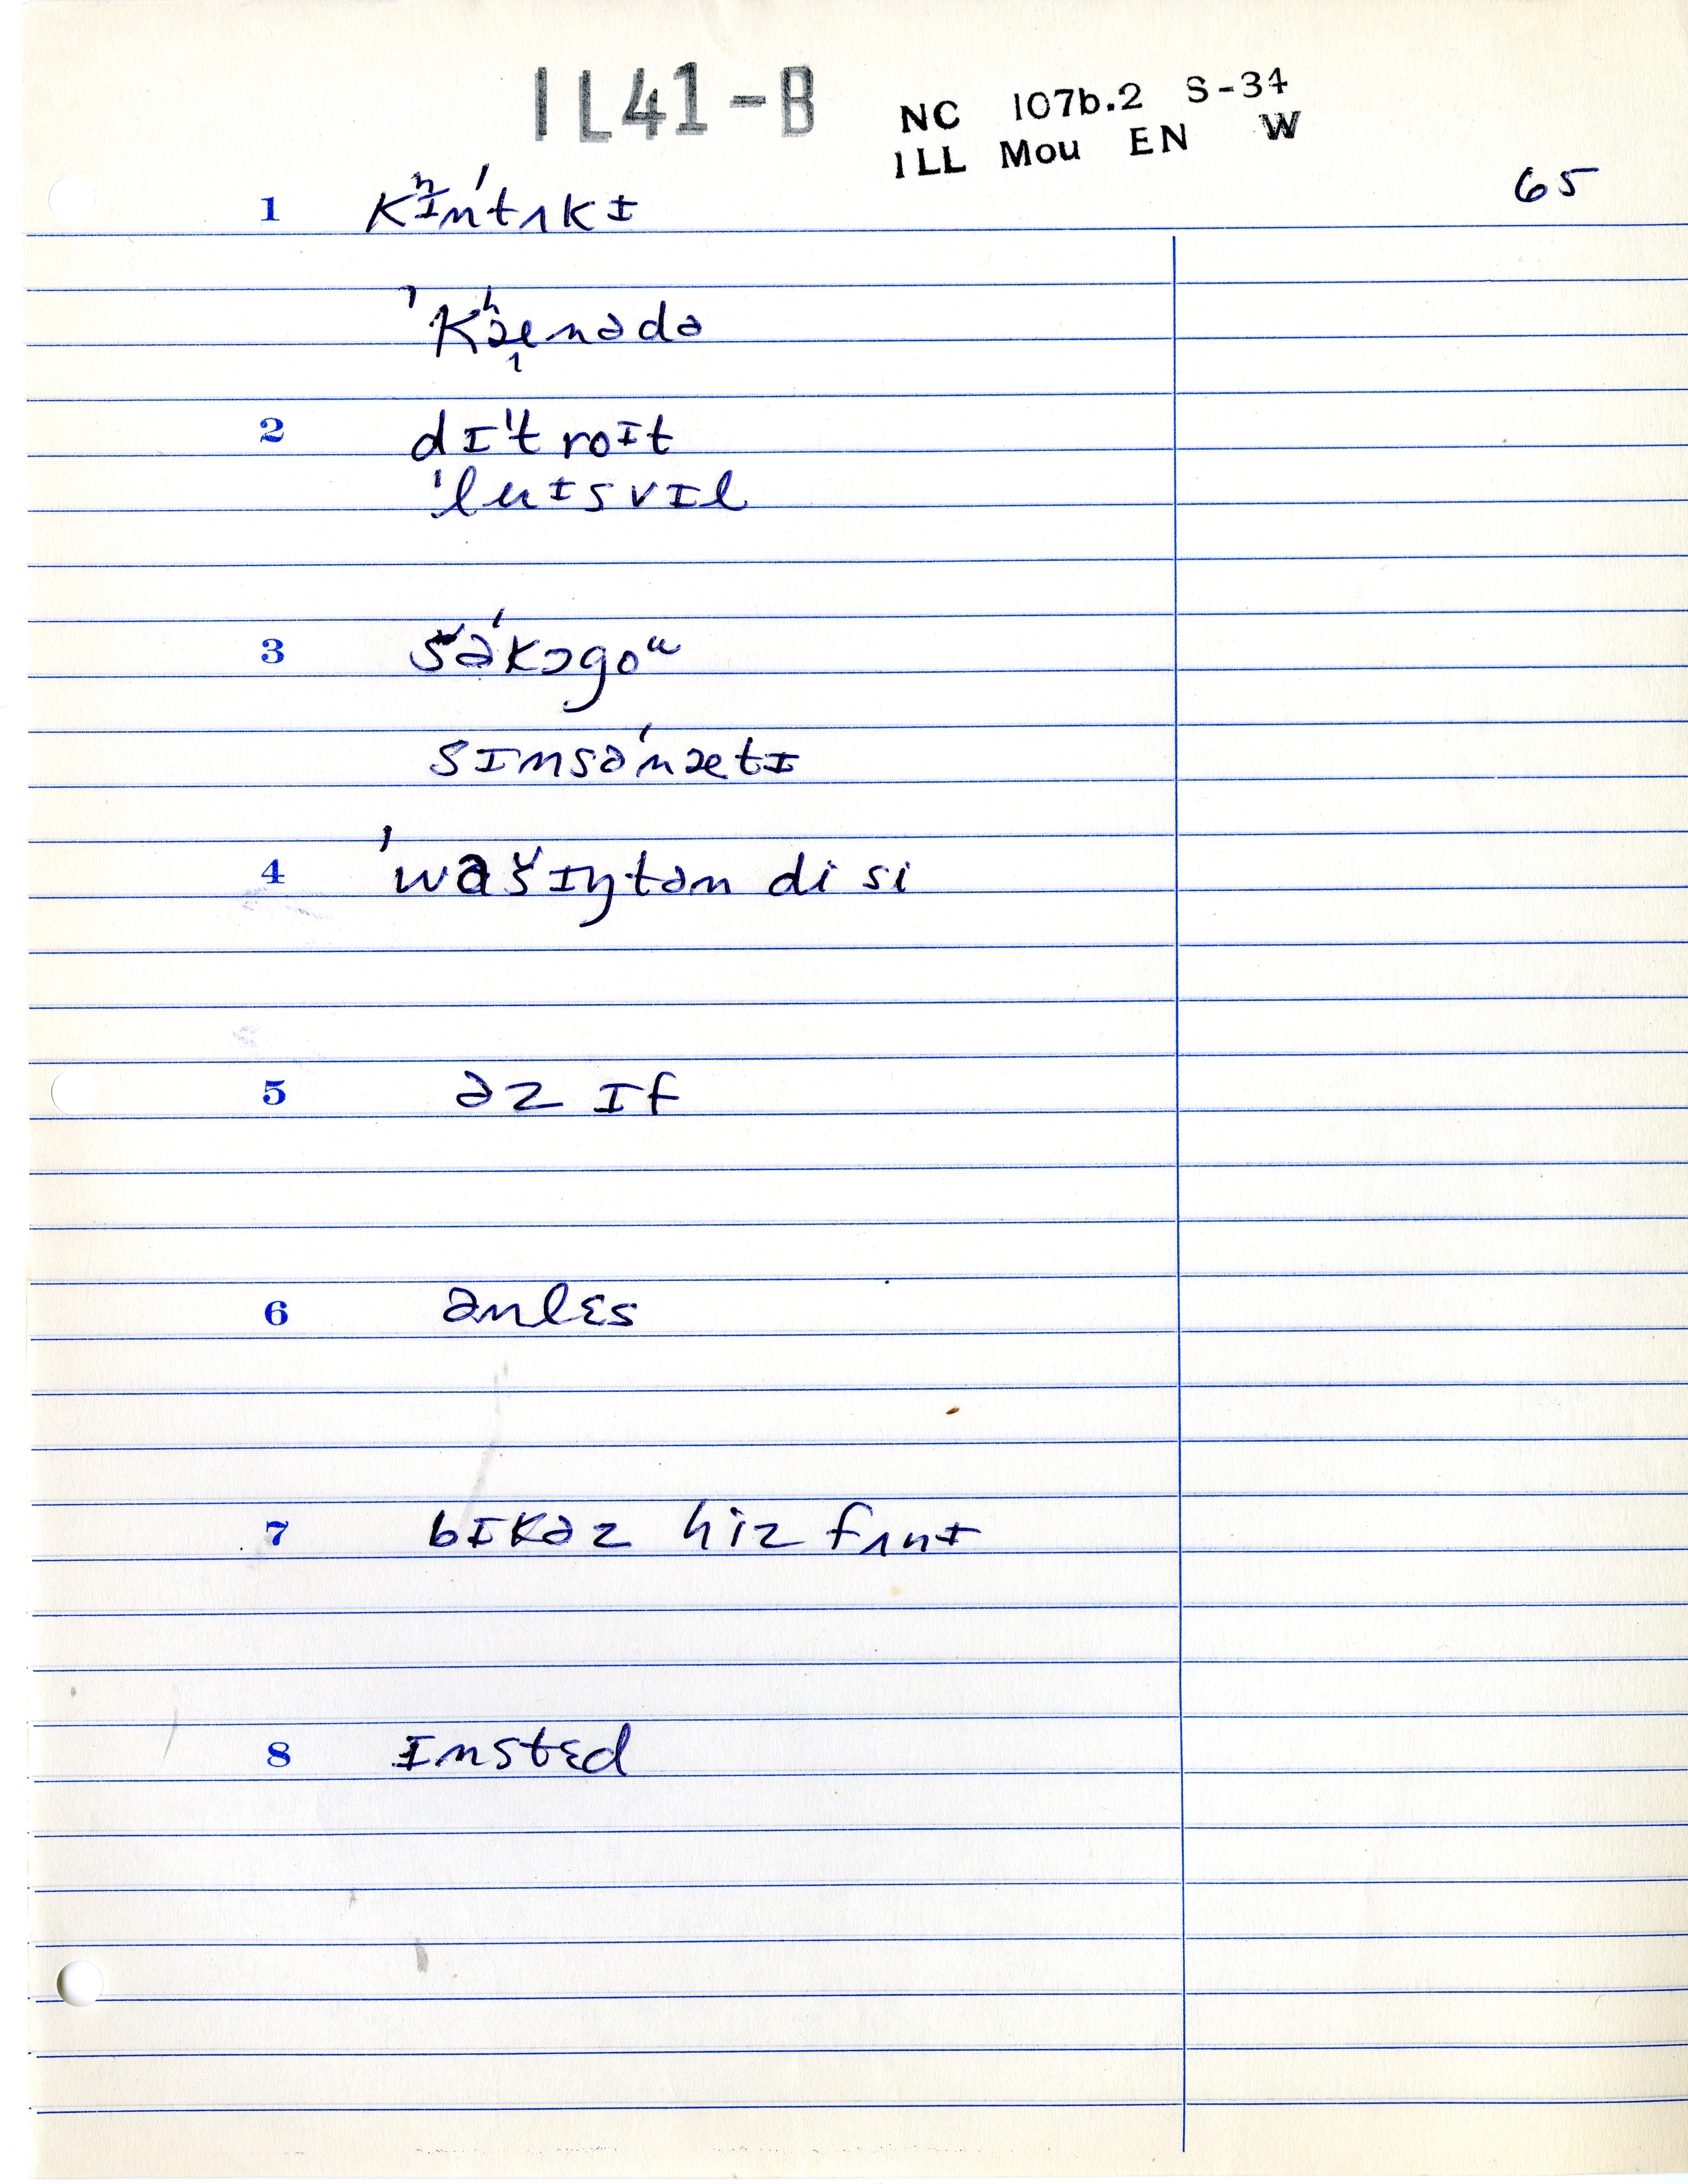 IL41-B
NC 107b.2 S-34
ILL Mou EN W
65
1 kʰɪn'tʌkɪ
'kʰænədə
2 dɪ'troɪt
'luɪsvɪl
3 šə'kɔgoᵘ
sɪnsə'nætɪ
4 'wašɪŋtən di si
5 əz ɪf
6 ənlɛs
7 bɪkəz hiz fʌnɪ
8 ɪnstɛd